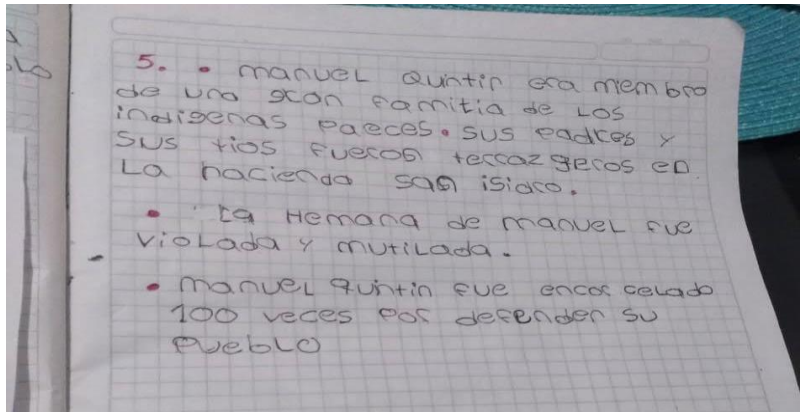 5. • manuel Quintin era miembro
de una gran familia de Los
indigenas paeces. sus padres y
sus tios fueron terrazgeros en
La hacienda san isidro.
• La Hemana de manuel fue
violada y mutilada.
• manuel quintin fue encarcelado
100 veces por defender su
pueblo